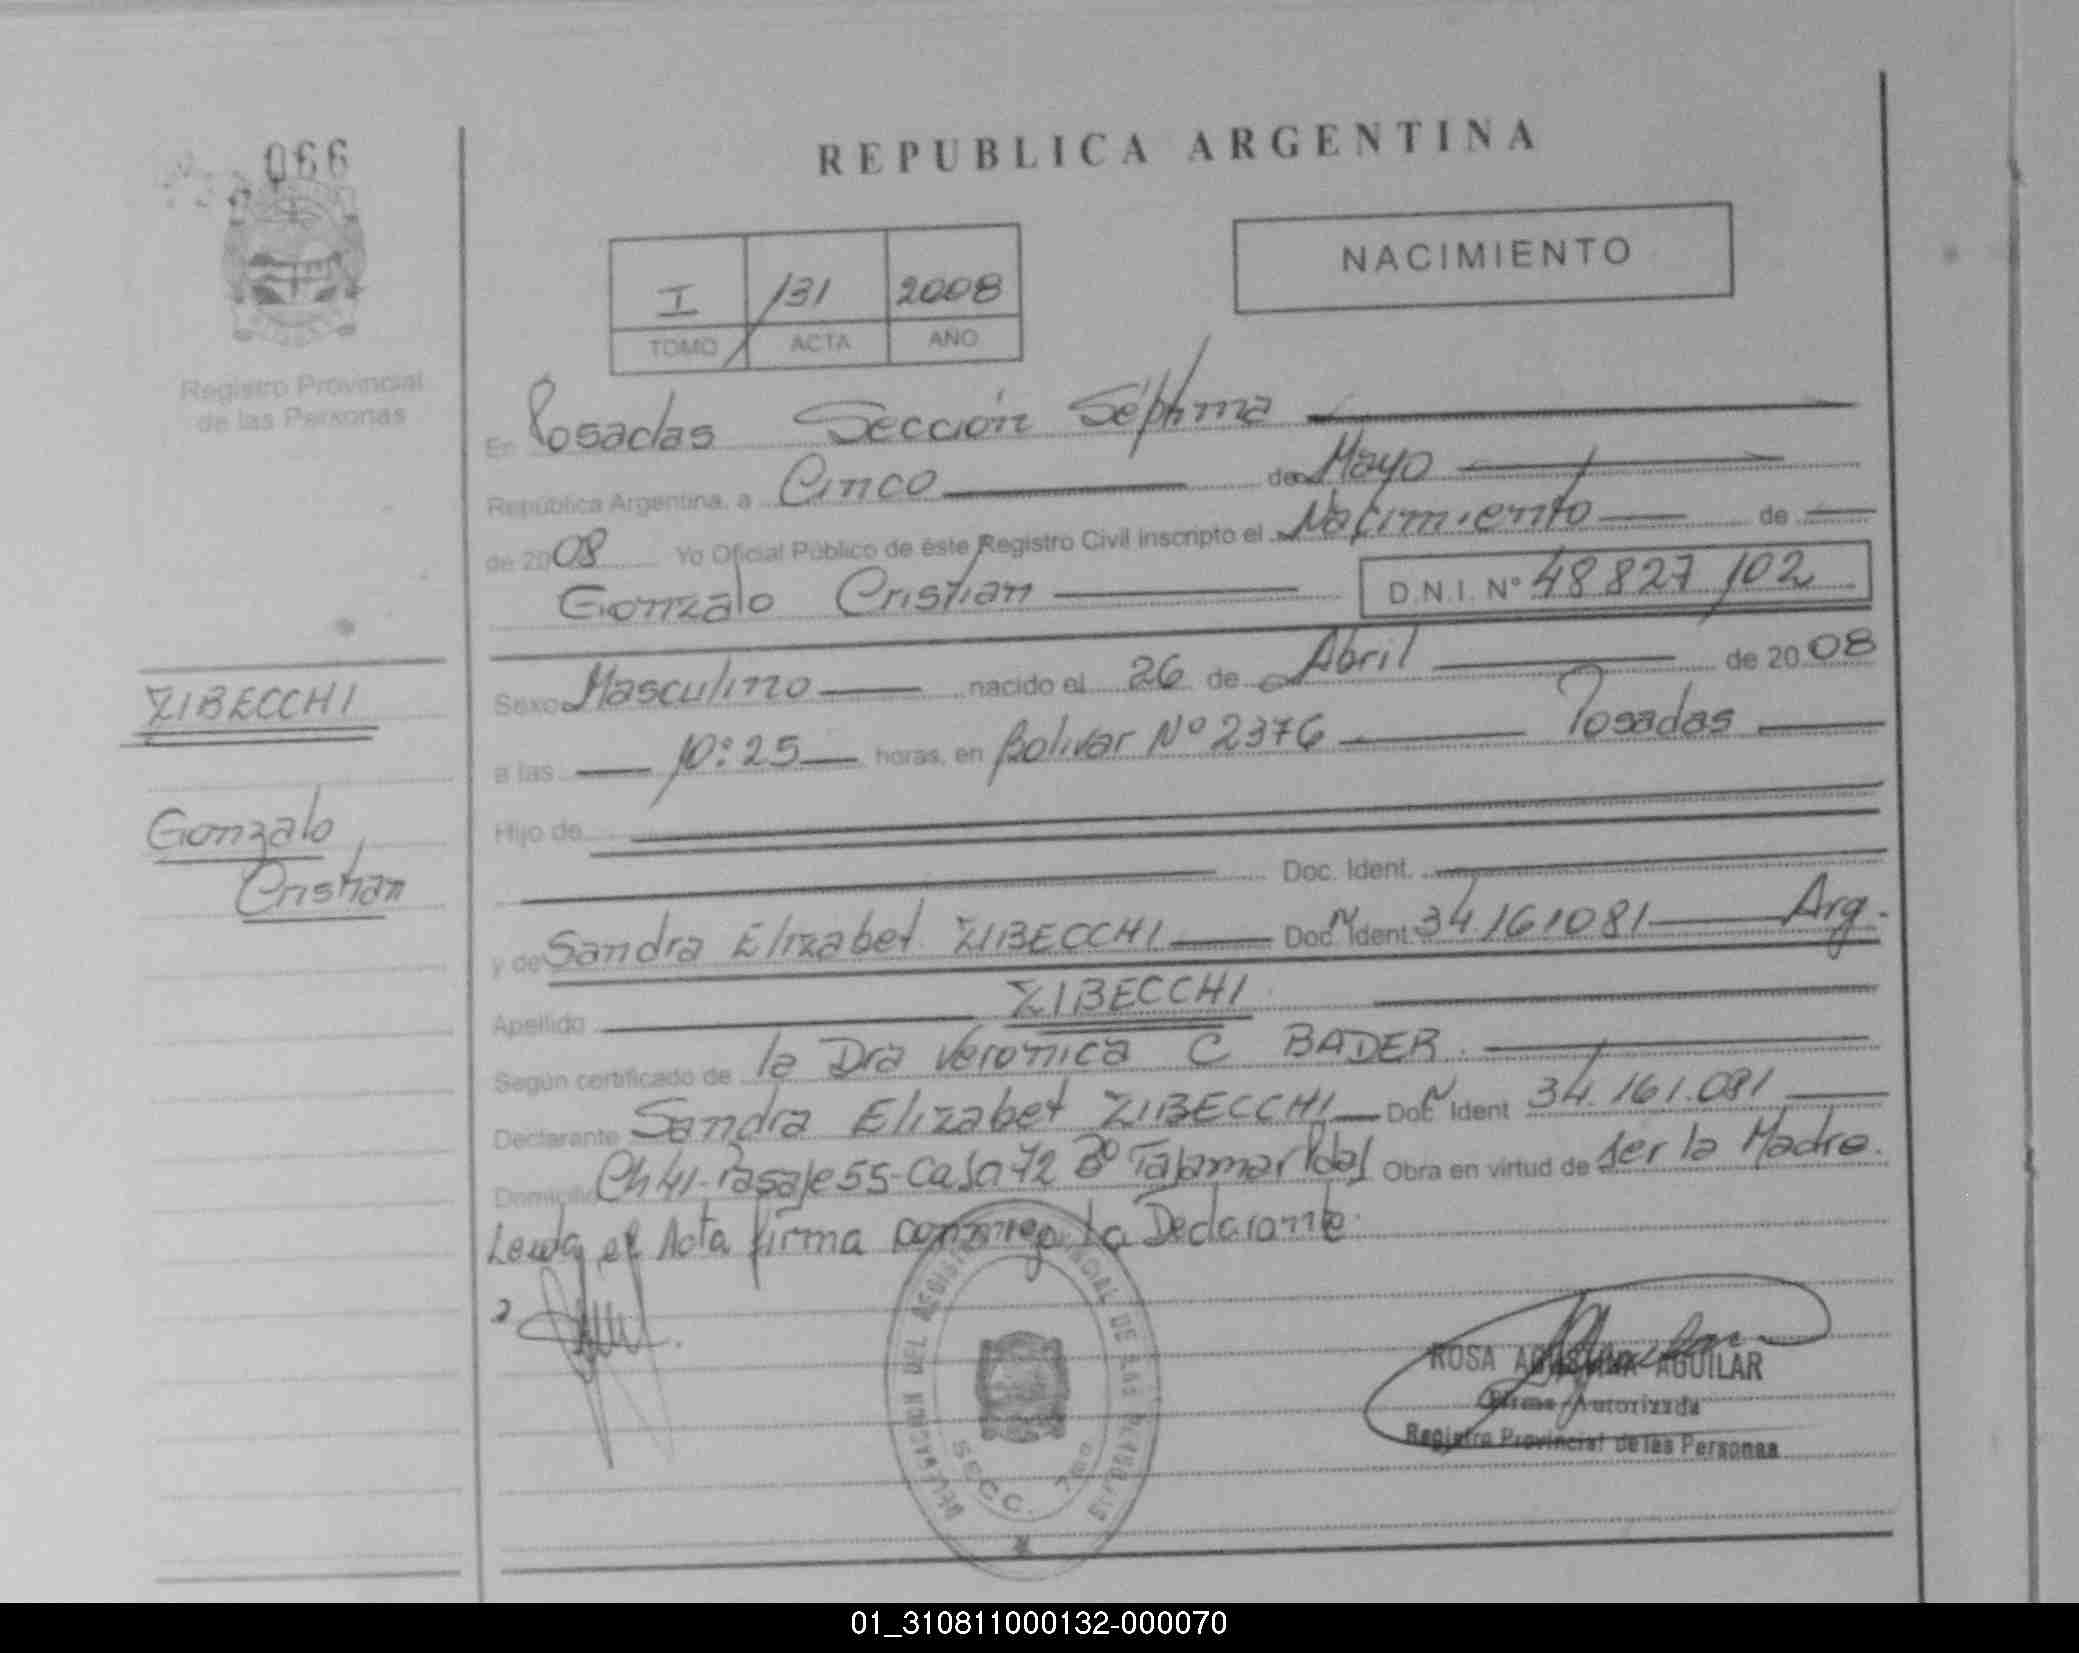 066
REPUBLICA ARGENTINA
NACIMIENTO
I 131 2008
TOMO ACTA AÑO
Registro Provincial
de las Personas
En Posadas Sección Séptima
República Argentina, a Cinco de Mayo
de 2008 Yo Oficial Público de éste Registro Civil inscripto el Nacimiento de
Gonzalo Cristian D.N.I. Nº 48827102
Sexo Masculino nacido el 26 de Abril de 2008
a las 10:25 horas, en Bolivar Nº 2376 Posadas
Hijo de
Doc. Ident.
y de Sandra Elizabet ZIBECCHI Doc. Ident. 34.161081 Arg.
Apellido ZIBECCHI
Según certificado de la Dra Veronica C BADER.
Declarante Sandra Elizabet ZIBECCHI Doc Ident 34.161.081
Domicilio Ch 41-Pasaje 55-Casa 72 Bº Tajamar Pdas Obra en virtud de ser la Madre.
Leida el Acta firma conmigo La Declarante.
ZIBECCHI
Gonzalo
Cristian
DELEGACION DEL REGISTRO PROVINCIAL DE LAS PERSONAS
SECC. 7ma
ROSA AGUSTINA AGUILAR
Firma Autorizada
Registro Provincial de las Personas
01_310811000132-000070